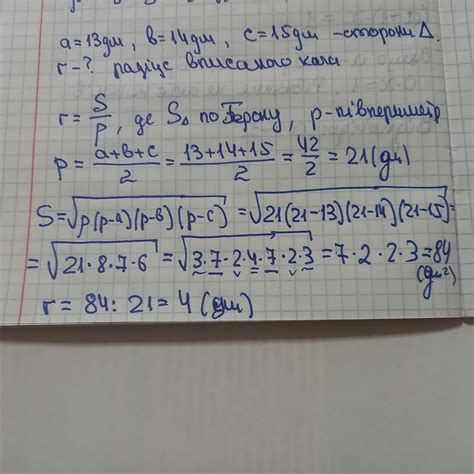 a=13дм, в=14дм, с=15дм -сторони Δ.
r-? радіус вписаного кола
r = S/p, де S△ по Герону, p-півпериметр
p = (a+в+c)/2 = (13+14+15)/2 = 42/2 = 21(дм)
S=√(p(p-a)(p-в)(p-c)) = √(21(21-13)(21-14)(21-15)) =
= √(21·8·7·6) = √(3·7·2·4·7·2·3) = 7·2·2·3=84 (дм²)
r = 84:21=4 (дм)